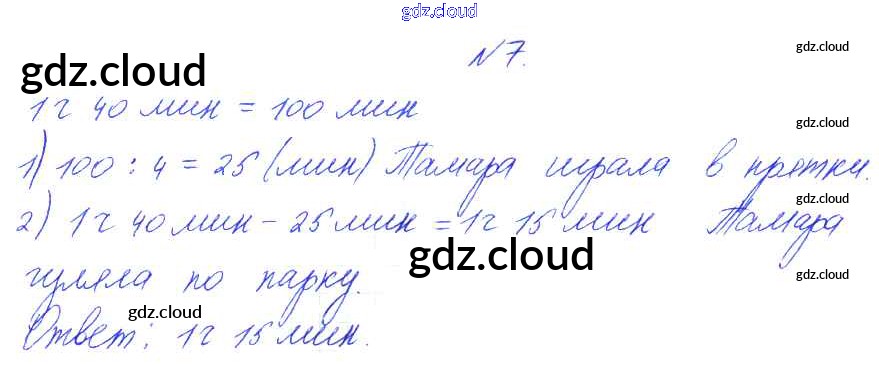 gdz.cloud
№7.
gdz.cloud
gdz.cloud
1 ч 40 мин = 100 мин
gdz.cloud
1) 100 : 4 = 25 (мин) Тамара играла в прятки.
gdz.cloud
2) 1 ч 40 мин - 25 мин = 1 ч 15 мин Тамара
gdz.cloud
gdz.cloud
гуляла по парку.
gdz.cloud
Ответ: 1 ч 15 мин.